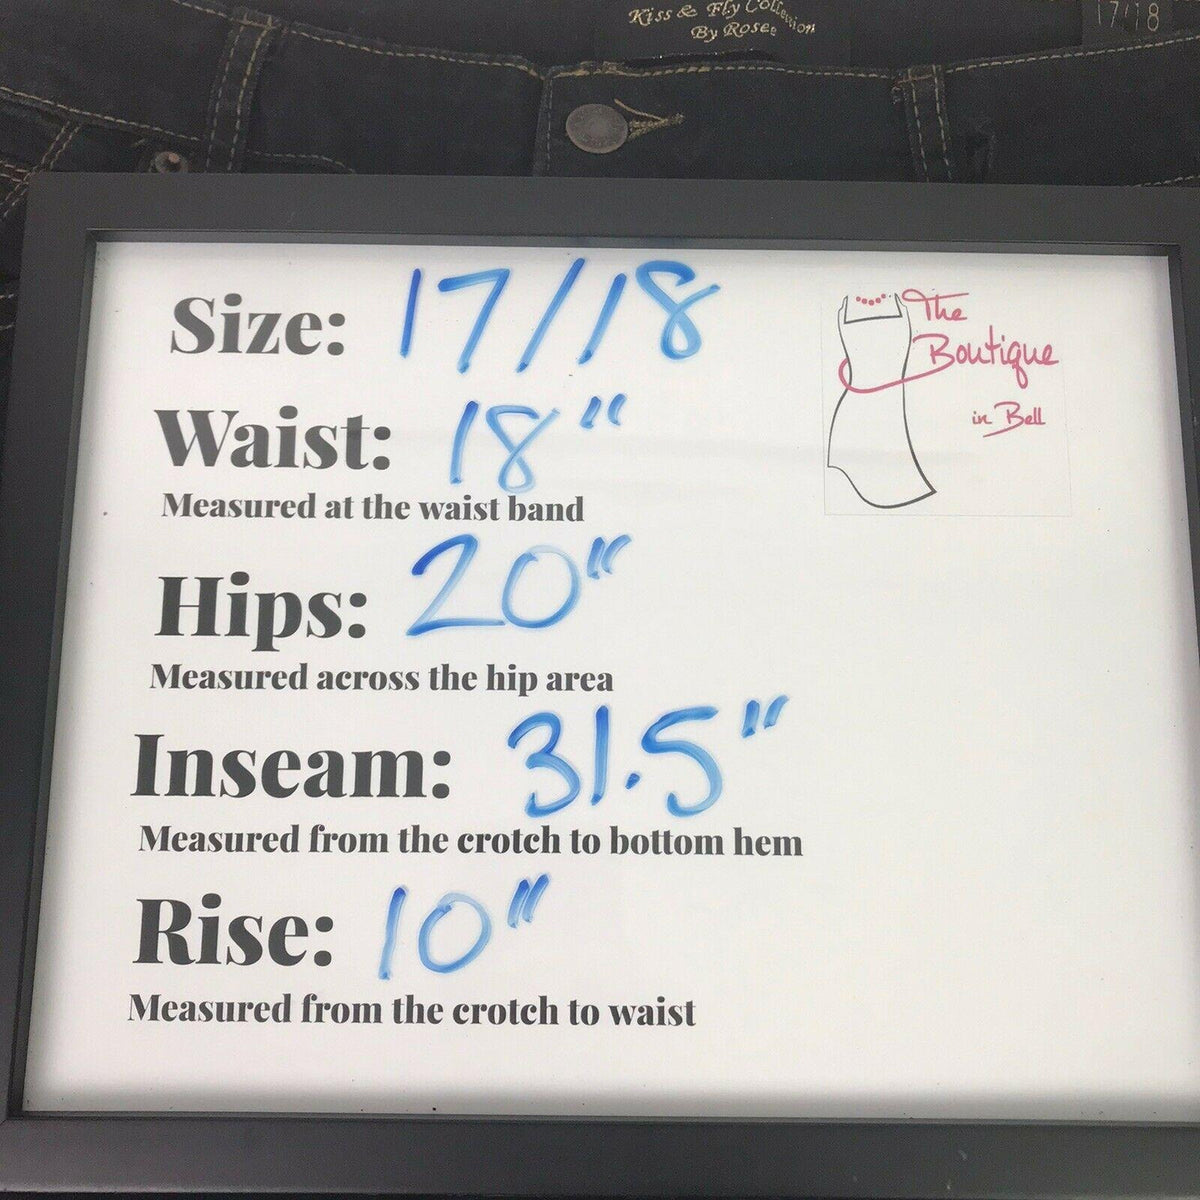 Kiss & Fly Collection
By Rosee
17/18
Size: 17/18
The
Boutique
in Bell
Waist: 18"
Measured at the waist band
Hips: 20"
Measured across the hip area
Inseam: 31.5"
Measured from the crotch to bottom hem
Rise: 10"
Measured from the crotch to waist